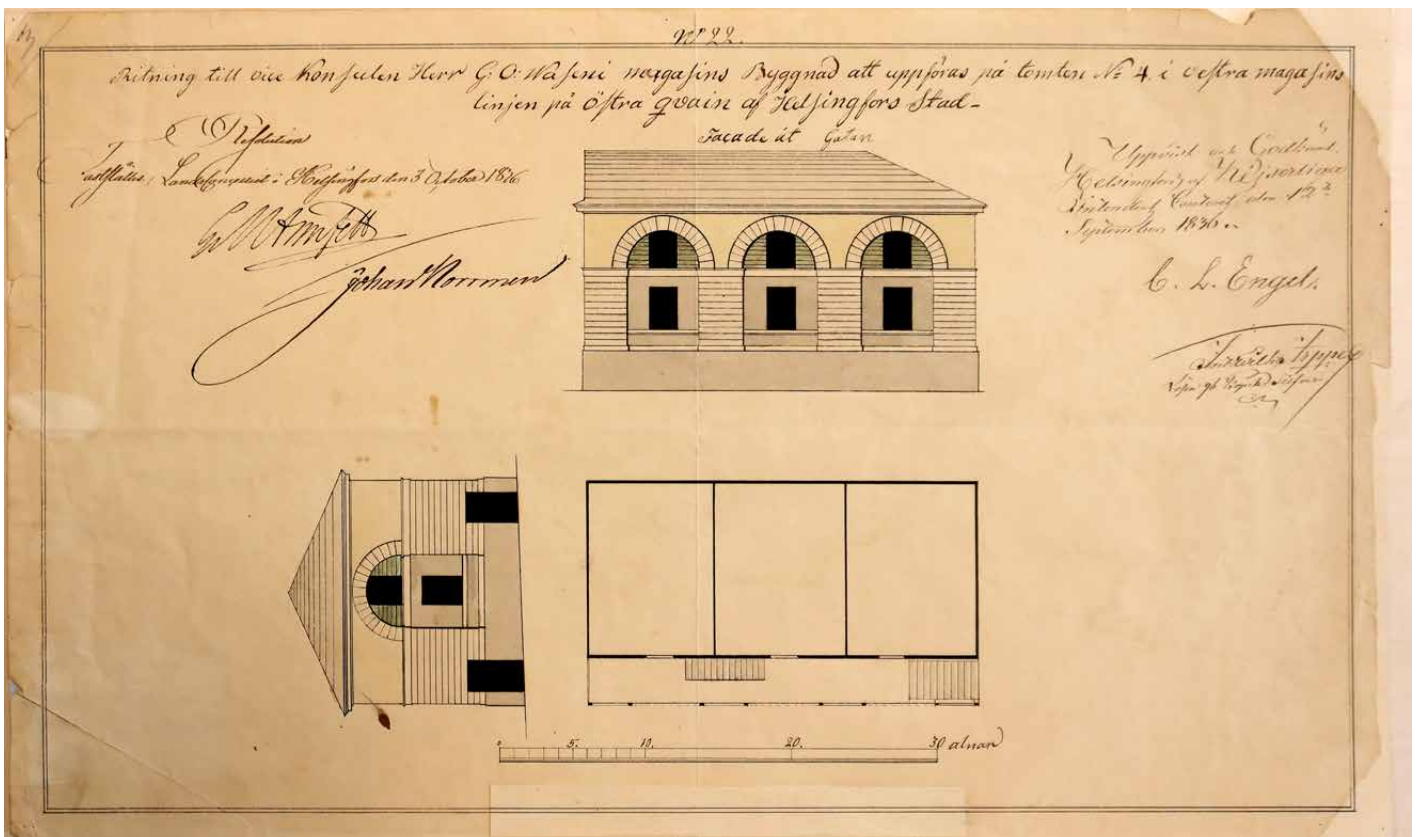 N° 22.
Ritning till vice Konsulen Herr G: O: Wasenii magasins Byggnad att uppföras på tomten N° 4. i vestra magasins
linjen på östra qvain af Helsingfors Stad-
Resolution
Landscancelliet i Helsingfors den 3 October 1836
Johan Norrmen
Facade åt Gatan
Uppvist och Godkänd.
Helsingfors af
Intendents Contoiret den 12
September 1836
C. L. Engel.
0 5. 10. 20. 30 alnar